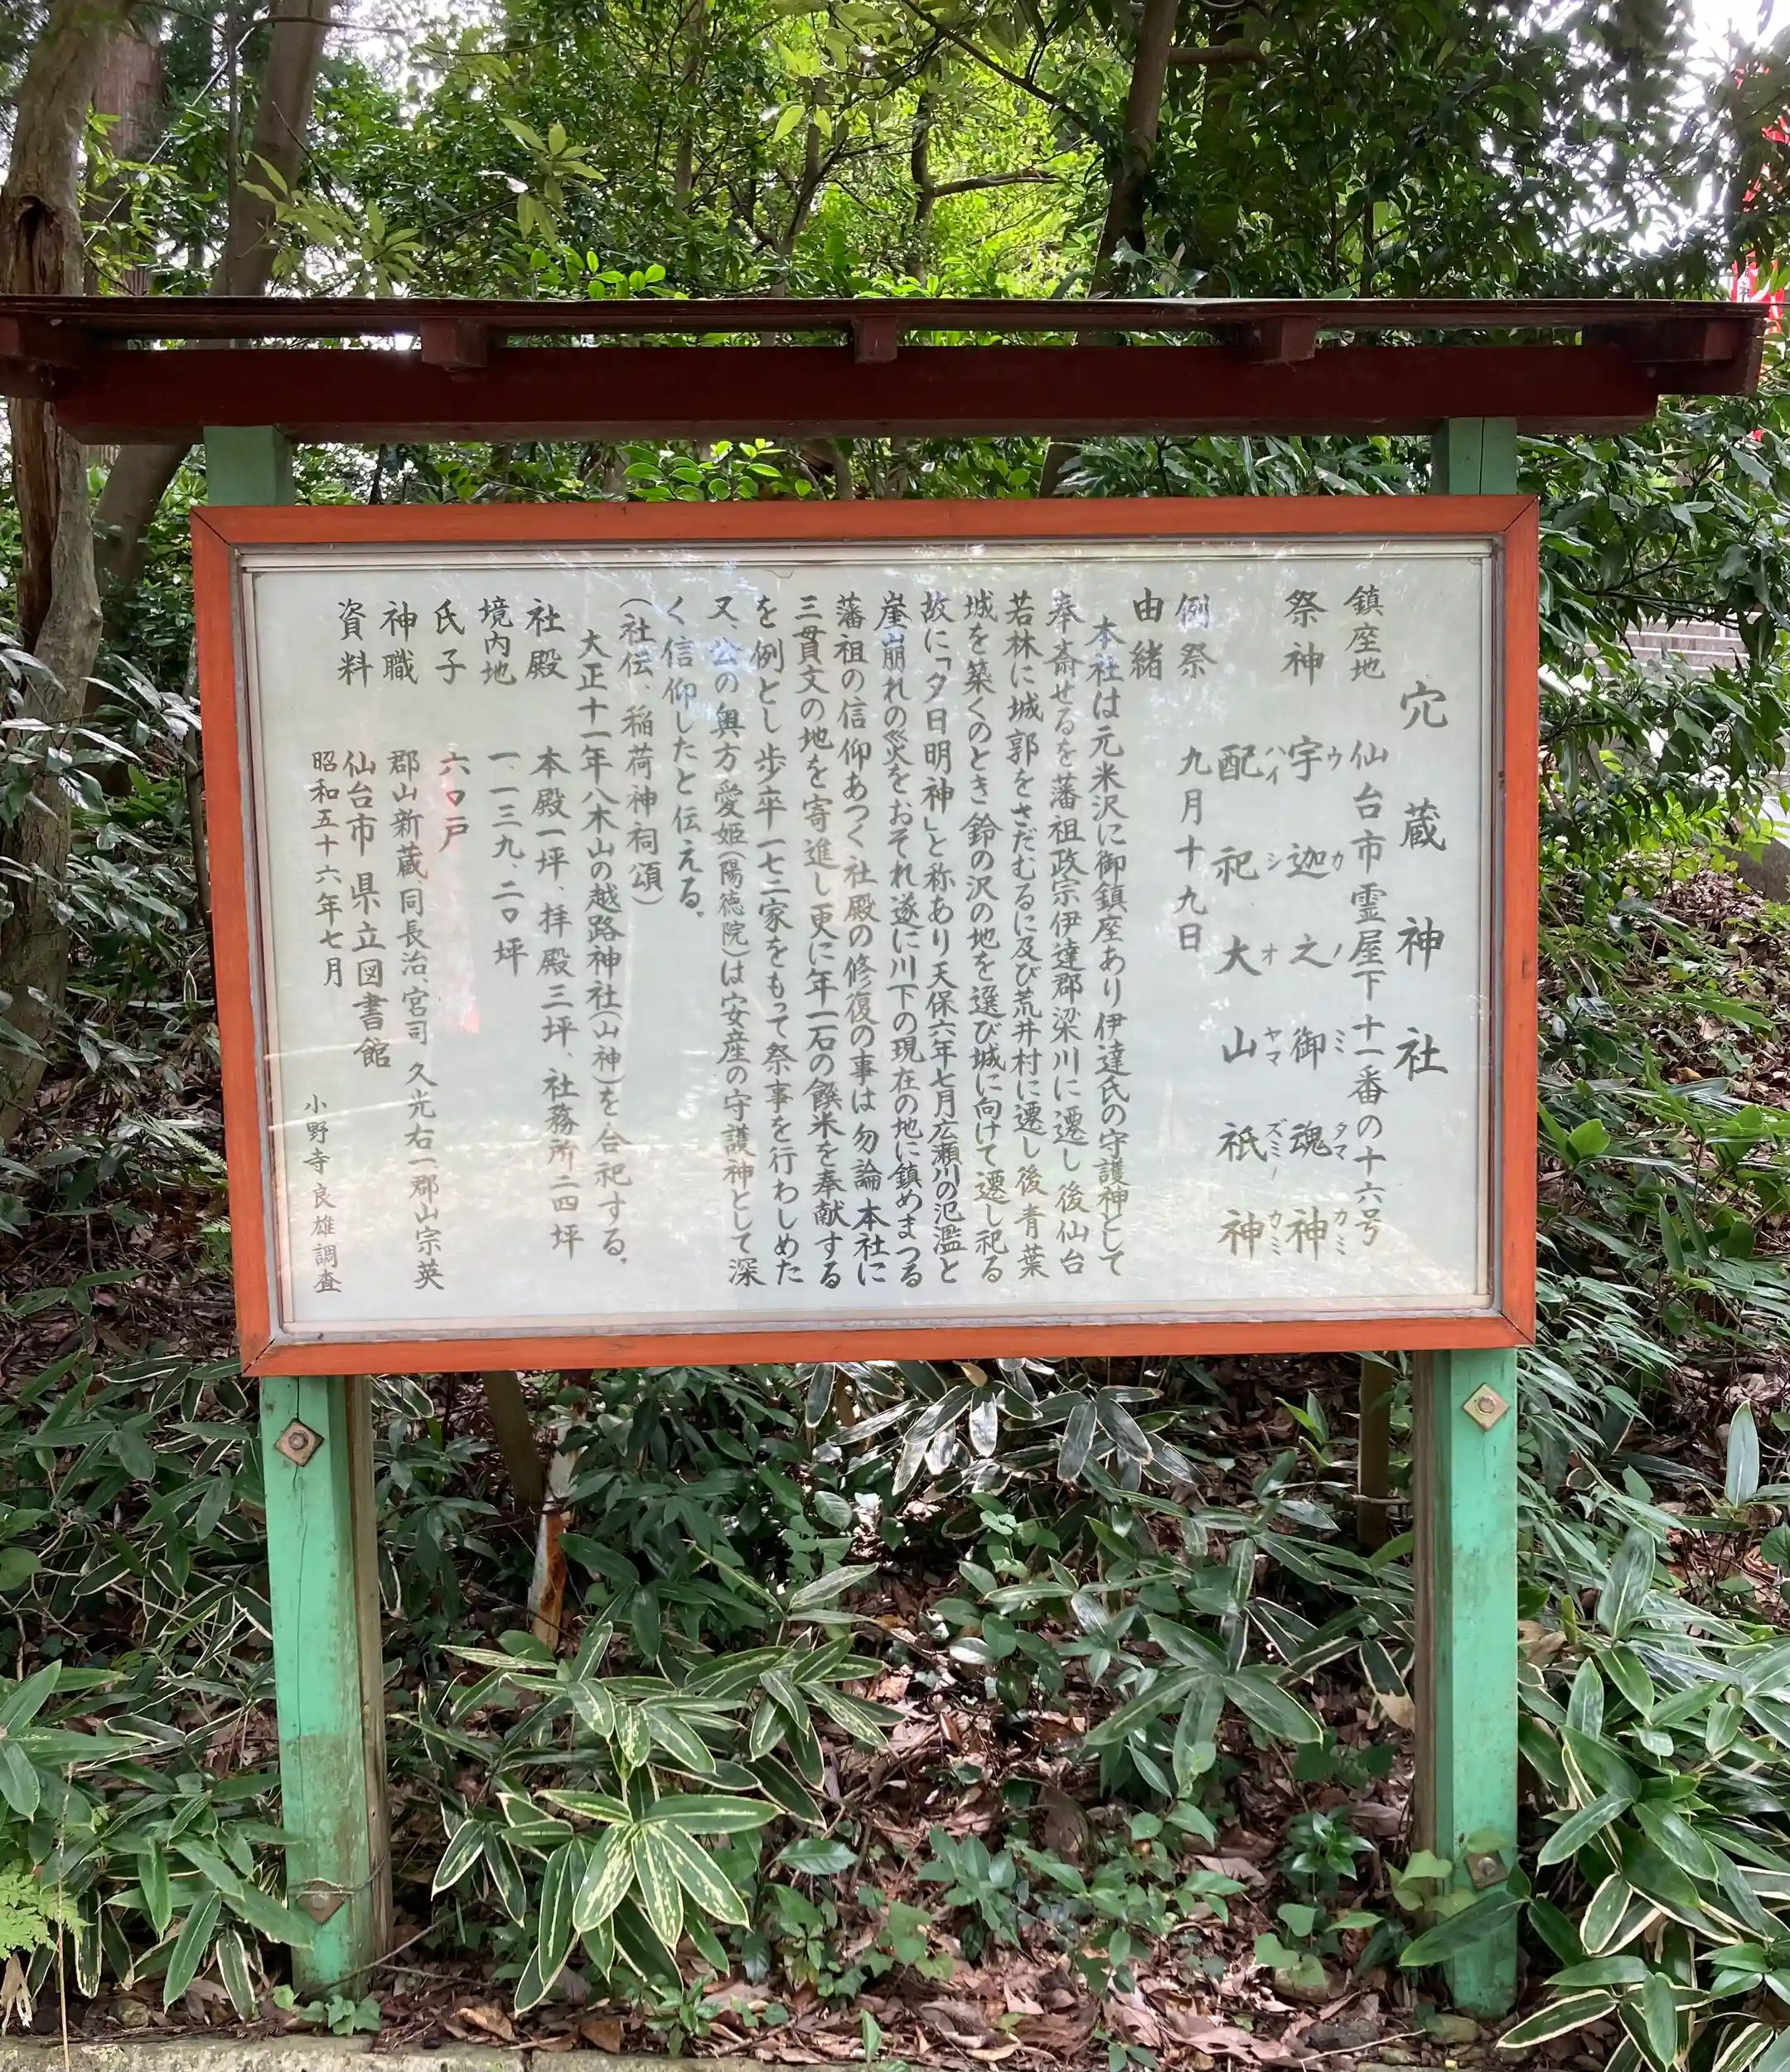 穴蔵神社
鎮座地 仙台市霊屋下十一番の十六号
祭神 宇迦之御魂神
ウカノミタマカミ
配祀大山祇神
ハイシオヤマズミノカミ
例祭 九月十九日
由緒
本社は元米沢に御鎮座あり伊達氏の守護神として
奉斎せるを藩祖政宗伊達郡梁川に遷し後仙台
若林に城郭をさだむるに及び荒井村に遷し後青葉
城を築くのとき鈴の沢の地を選び城に向けて遷し祀る
故に「夕日明神」と称あり天保六年七月広瀬川の氾濫と
崖崩れの災をおそれ遂に川下の現在の地に鎮めまつる
藩祖の信仰あつく社殿の修復の事は勿論本社に
三貫文の地を寄進し更に年一石の饌米を奉献する
を例とし歩卒一七二家をもって祭事を行わしめた
又、公の奥方愛姫(陽徳院)は安産の守護神として深
く信仰したと伝える。
(社伝、稲荷神祠頌)
大正十一年八木山の越路神社(山神)を合祀する。
社殿 本殿一坪、拝殿三坪、社務所二四坪
境内地 一、一三九、二〇坪
氏子 六〇戸
神職 郡山新蔵、同長治、宮司 久光右一郡山宗英
資料 仙台市 県立図書館
昭和五十六年七月
小野寺良雄調査